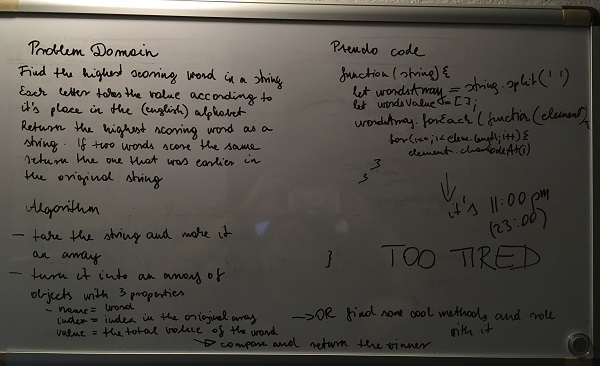 Problem Domain
Find the highest scoring word in a string
Each letter takes the value according to
it's place in the (english) alphabet
Return the highest scoring word as a
string. If two words score the same
return the one that was earlier in
the original string
Algorithm
— take the string and make it
an array
— turn it into an array of
objects with 3 properties
- name = word
index = index in the original array
value = the total value of the word
→ compare and return the winner
→ OR find some cool methods and role
with it
Pseudo code
function (string) {
let wordsArray = string.split(' ')
let wordsValue = [];
wordsArray.forEach (function(element) {
for (i=0; i<elem.length; i++) {
element.charCodeAt(i)
}
}
}
it's 11:00 pm
(23:00)
TOO TIRED